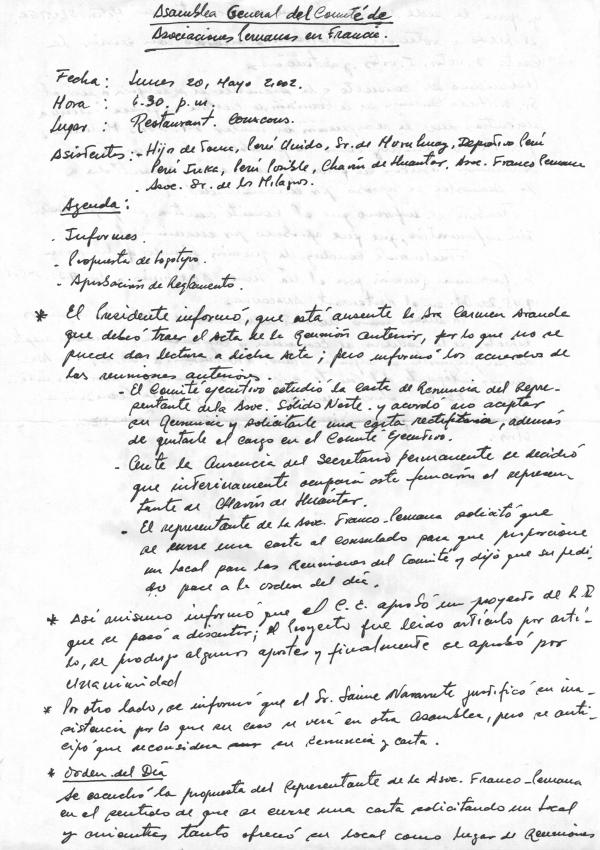 Asamblea General del Comité de
Asociaciones Peruanas en Francia.
Fecha: Lunes 20, Mayo 2,002.
Hora : 6.30. p.m.
Lugar : Restaurant.
Asistentes: - Hijo de Tauca, Perú Unido, Sr. de Muruhuay, Deportivo Perú
Perú Inka, Perú Posible, Chavín de Huántar, Asoc. Franco Peruana
. Asoc. Sr. de los Milagros.
Agenda:
. Informes.
- Propuesta de Logotipo.
- Aprobación de Reglamento.
* El Presidente informó, que está ausente la Sra Carmen Aranda
que debió traer el Acta de la Reunión anterior, por lo que no se
puede dar lectura a dicha Acta; pero informó los acuerdos de
las reuniones anteriores.
- El Comité ejecutivo estudió la carta de Renuncia del Repre-
sentante de la Asoc. Sólido Norte. y acordó no aceptar
su Renuncia y solicitarle una carta rectificatoria, además
de quitarle el cargo en el Comité Ejecutivo.
- Ante la Ausencia del Secretario permanente se decidió
que interinamente ocuparía esta función el represen-
tante de Chavín de Huántar.
- El representante de la Asoc. Franco-Peruana solicitó que
se curse una carta al consulado para que proporcione
un local para las Reuniones del Comité y dijó que su pedi-
do pase a la orden del día.
* Asi mismo informó que el C. E. aprobó un proyecto de R.I
que se pasó a discutir; el Proyecto fue leido artículo por artí-
lo, se produjo algunos aportes y finalmente se aprobó por
Unanimidad
* Por otro lado, se informó que el Sr. Jaime Navarrete justificó su ina-
sistencia por lo que su caso se verá en otra asamblea, pero se anti-
cipó que reconsidera su renuncia y carta.
* Orden del Día
Se escuchó la propuesta del Representante de la Asoc. Franco-Peruana
en el sentido de que se curse una carta solicitando un Local
y mientras tanto ofreció su local como lugar de Reuniones